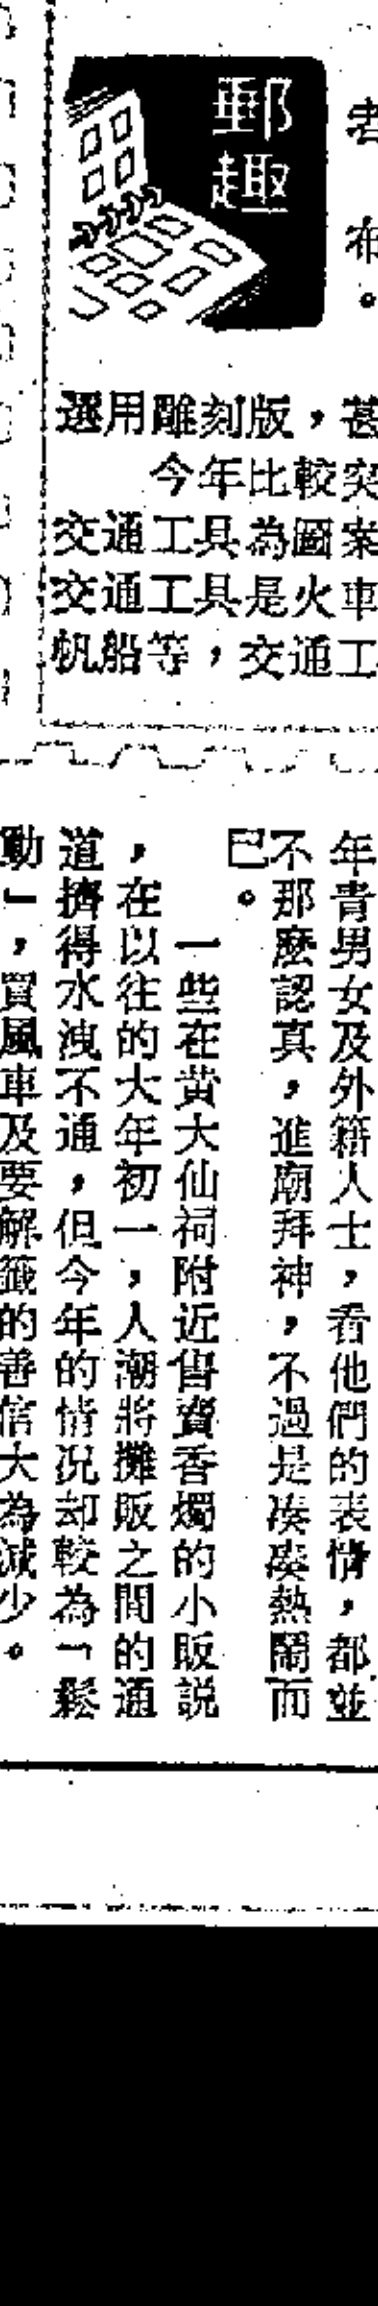 郵趣
者
布。
選用雕刻版，甚
今年比較突
交通工具為圖案
交通工具是火車
帆船等，交通工
年青男女及外籍人士，看他們的表情，都並
不那麼認真，進廟拜神，不過是凑凑熱鬧而
已。
一些在黄大仙祠附近售賣香燭的小販説
，在以往的大年初一，人潮將攤販之間的通
道擠得水洩不通，但今年的情况却較為「鬆
動」，買風車及要解籤的善信大為減少。